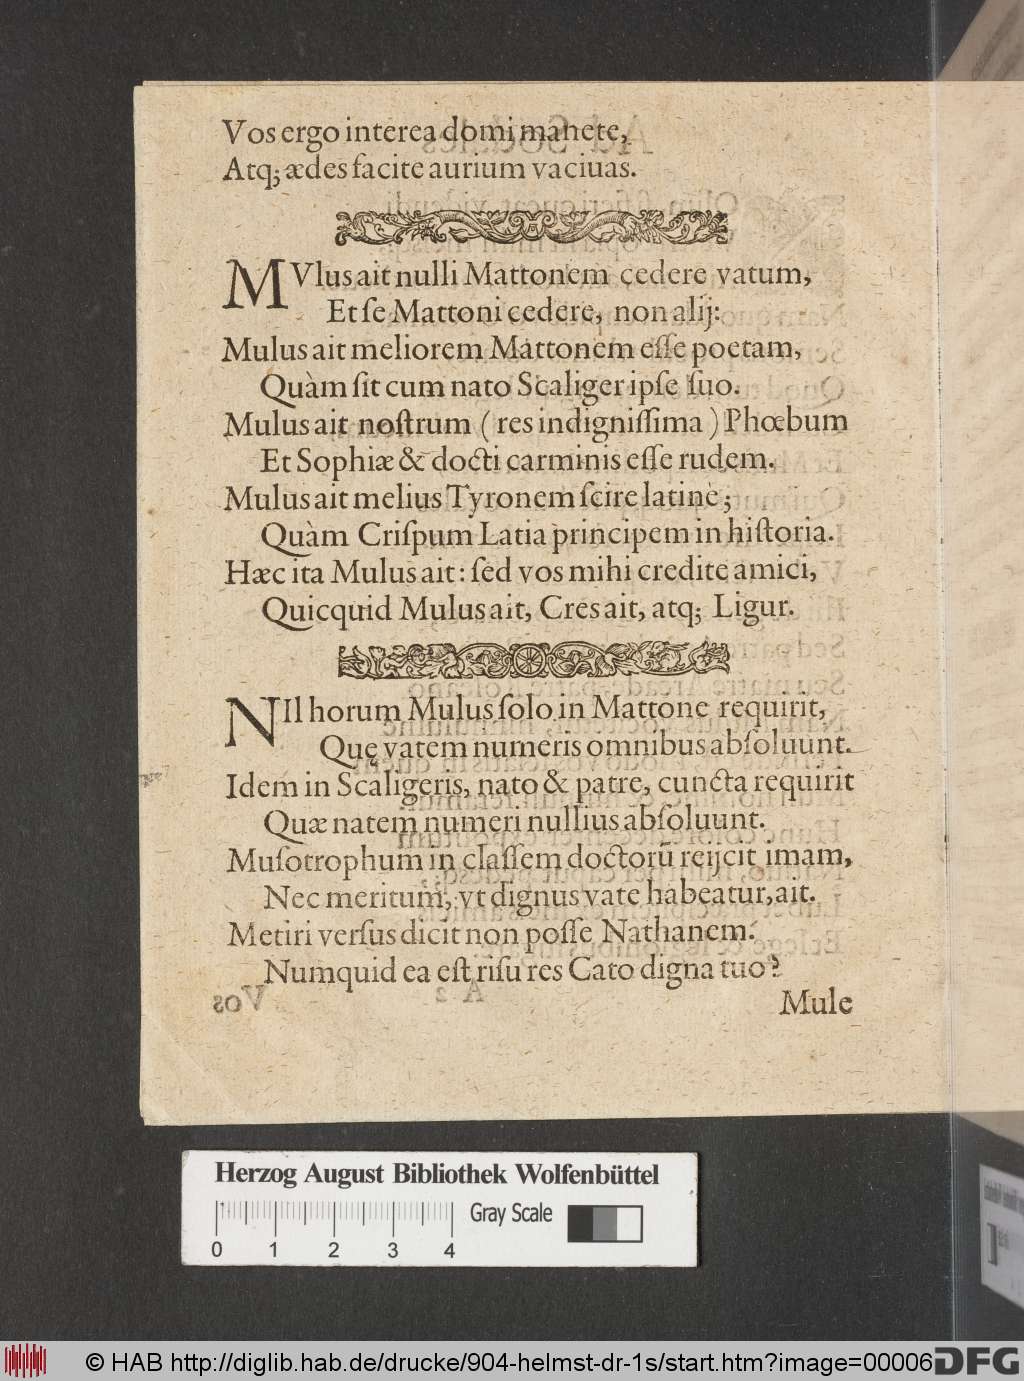 Vos ergo interea domi manete,
Atq; ædes facite aurium vaciuas.
MVlus ait nulli Mattonem cedere vatum,
Et ſe Mattoni cedere, non alij:
Mulus ait meliorem Mattonem eſſe poetam,
Quàm ſit cum nato Scaliger ipſe ſuo.
Mulus ait noſtrum (res indigniſſima) Phœbum
Et Sophiæ & docti carminis eſſe rudem.
Mulus ait melius Tyronem ſcire latinè;
Quàm Criſpum Latia principem in hiſtoria.
Hæc ita Mulus ait: ſed vos mihi credite amici,
Quicquid Mulus ait, Cres ait, atq; Ligur.
NIl horum Mulus ſolo in Mattone requirit,
Quę vatem numeris omnibus abſoluunt.
Idem in Scaligeris, nato & patre, cuncta requirit
Quæ natem numeri nullius abſoluunt.
Muſotrophum in claſſem doctorũ reijcit imam,
Nec meritum, vt dignus vate habeatur, ait.
Metiri verſus dicit non poſſe Nathanem.
Numquid ea eſt riſu res Cato digna tuo?
Mule
Herzog August Bibliothek Wolfenbüttel
Gray Scale
0 1 2 3 4
© HAB http://diglib.hab.de/drucke/904-helmst-dr-1s/start.htm?image=00006
DFG